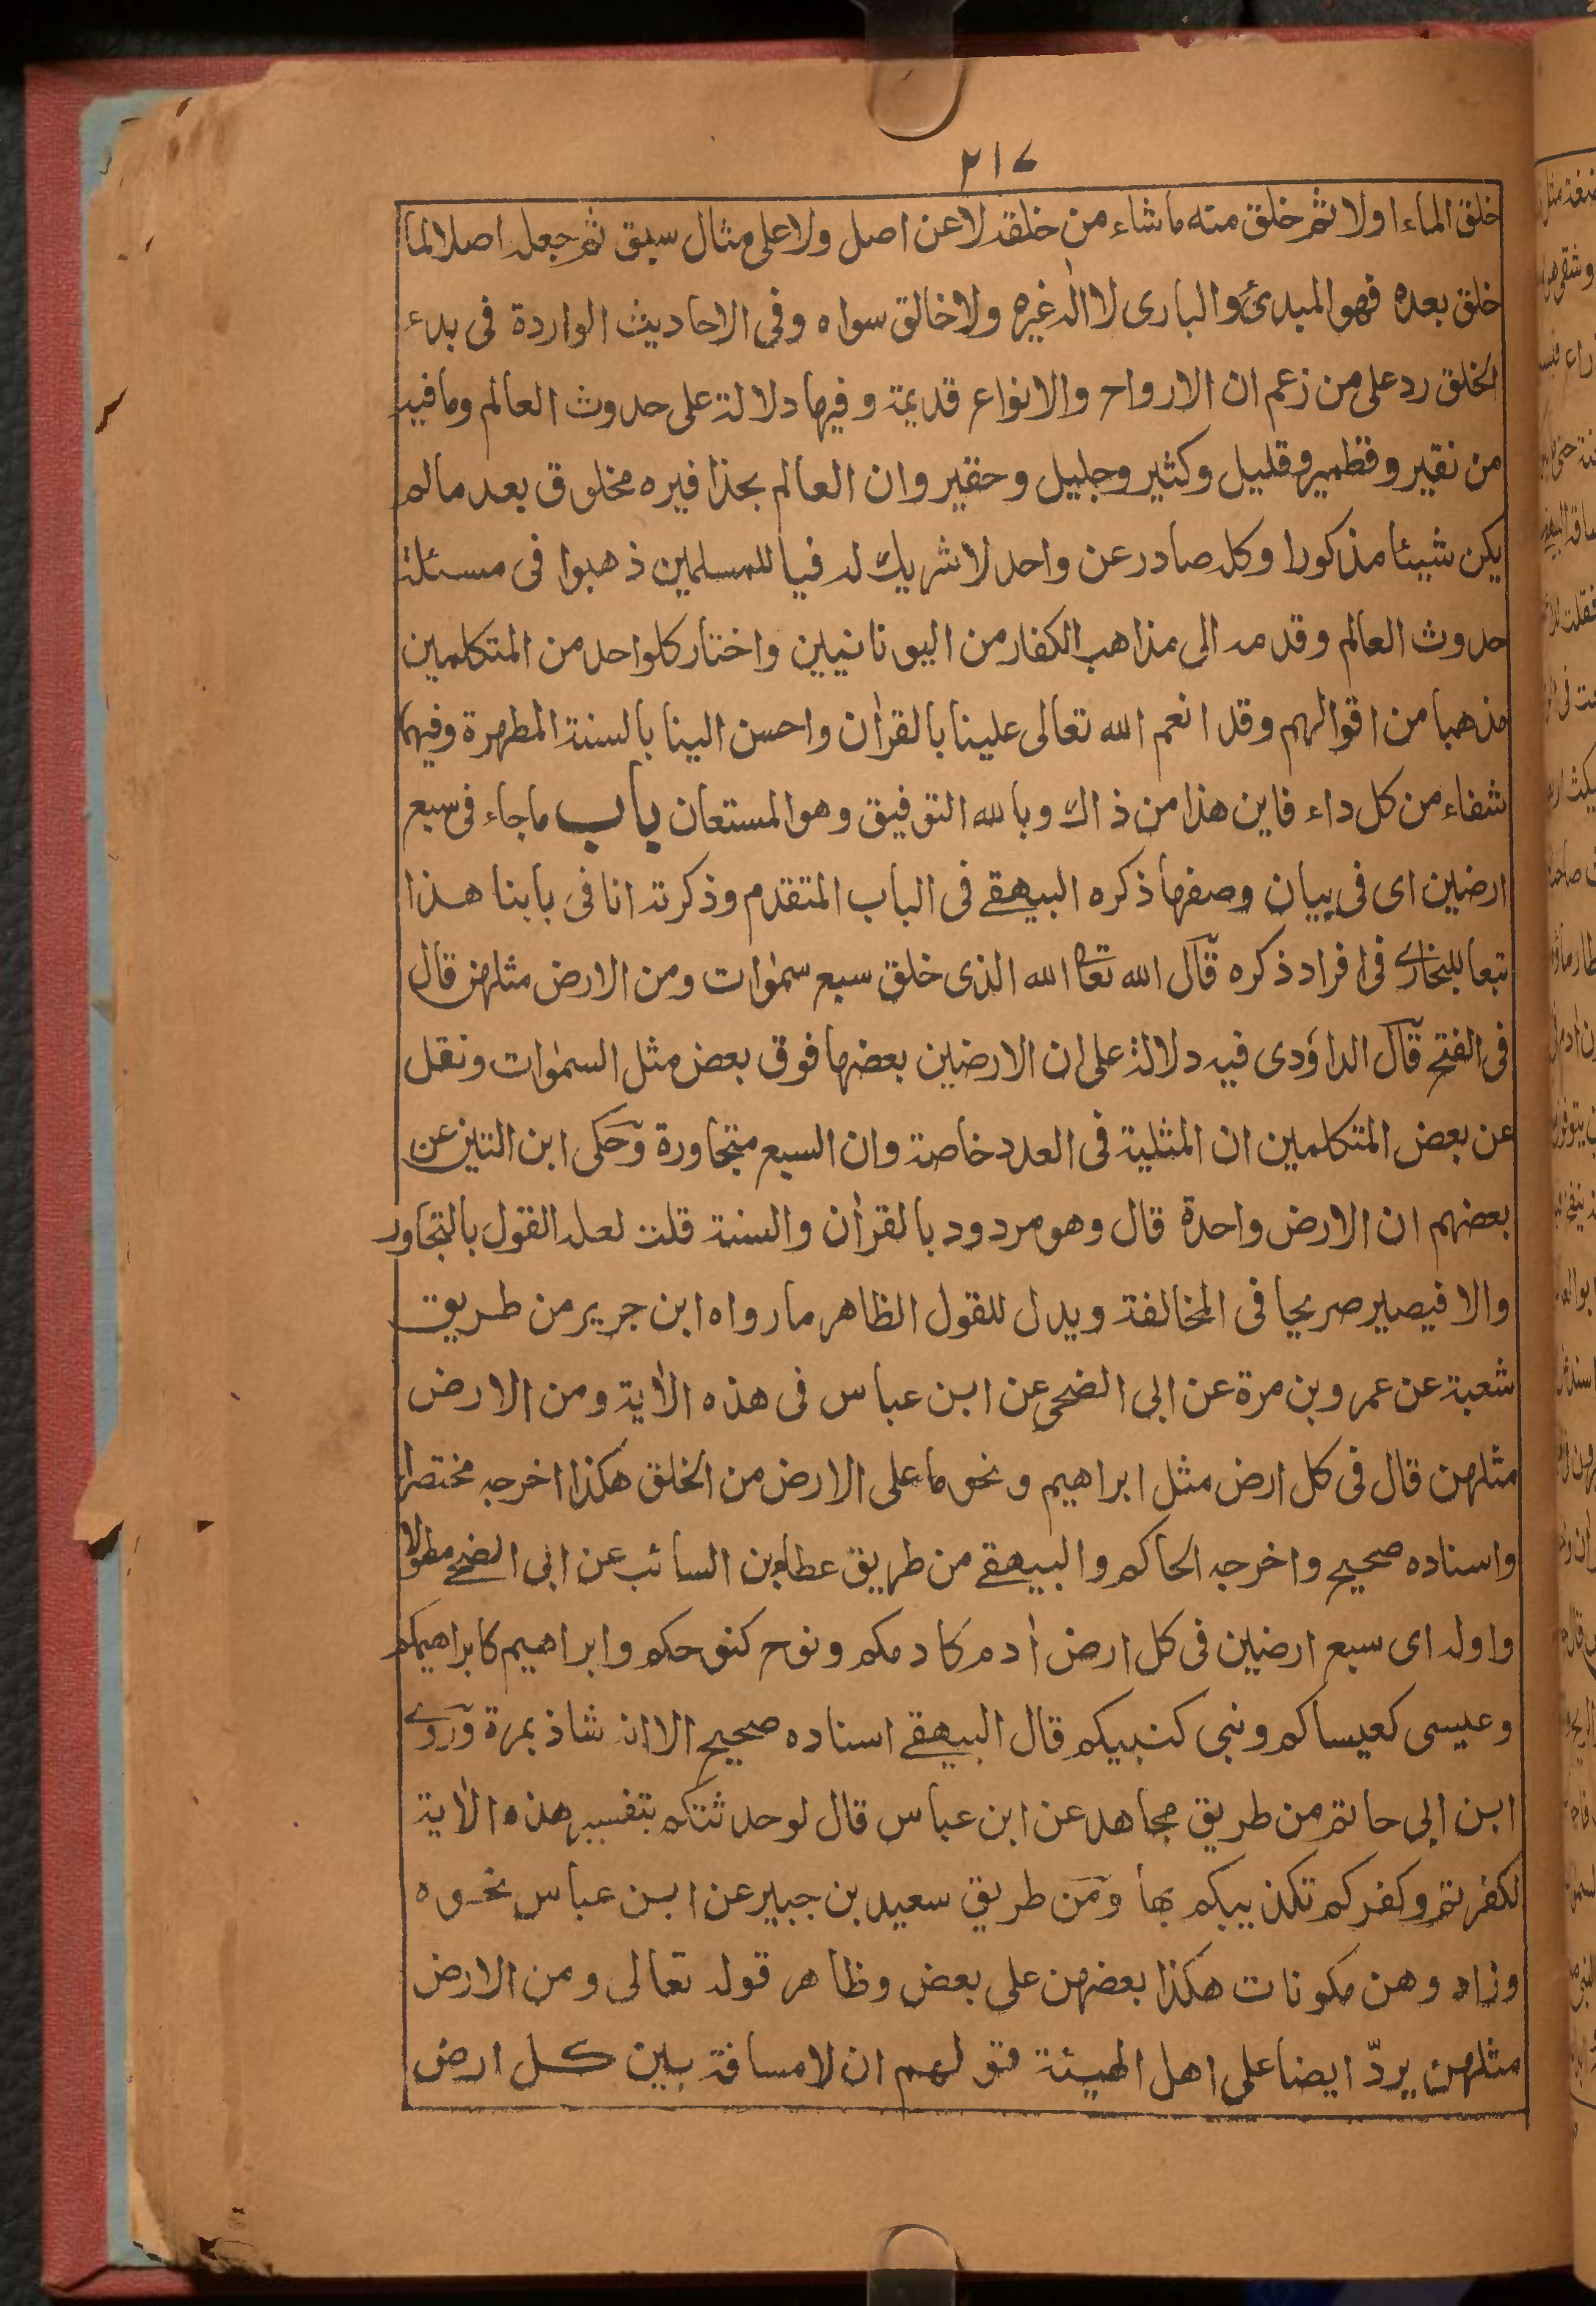 ٢١٤
خلق الماء اولا ثم خلق منه ماشاء من خلقه لا عن اصل ولا على مثال سبق ثم جعله اصلا لما
خلق بعده فهو المبدئ والبارى لا اله غيره ولا خالق سواه وفى الاحاديث الواردة فى بدء
الخلق رد على من زعم ان الارواح والانواع قديمة وفيها دلالة على حدوث العالم وما فيه
من نقير وقطمير وقليل وكثير وجليل وحقير وان العالم بحذافيره مخلوق بعد مالم
يكن شيئا مذكورا وكل صادر عن واحد لا شريك له فيا للمسلمين ذهبوا فى مسئلة
حدوث العالم وقدمه الى مذاهب الكفار من اليونانيين واختار كلواحد من المتكلمين
مذهبا من اقوالهم وقد انعم الله تعالى علينا بالقرآن واحسن الينا بالسنة المطهرة وفيهما
شفاء من كل داء فاين هذا من ذاك وبالله التوفيق وهو المستعان باب ماجاء فى سبع
ارضين اى فى بيان وصفها ذكره البيهقے فى الباب المتقدم وذكرته انا فى بابنا هذا
تبعا للبخارے فى افراد ذكره قال الله تعا الله الذى خلق سبع سمٰوات ومن الارض مثلهن قال
فى الفتح قال الداؤدى فيه دلالة على ان الارضين بعضها فوق بعض مثل السمٰوات ونقل
عن بعض المتكلمين ان المثلية فى العدد خاصة وان السبع متجاورة وحكى ابن التين عن
بعضهم ان الارض واحدة قال وهو مردود بالقرآن والسنة قلت لعله القول بالتجاور
والا فيصير صريحا فى المخالفة ويدل للقول الظاهر مارواه ابن جرير من طريق
شعبة عن عمرو بن مرة عن ابى الضحى عن ابن عباس فى هذه الاٰية ومن الارض
مثلهن قال فى كل ارض مثل ابراهيم ونحو ما على الارض من الخلق هكذا اخرجه مختصرا
واسناده صحيح واخرجه الحاكم والبيهقے من طريق عطاء بن السائب عن ابى الضحے مطولا
واوله اى سبع ارضين فى كل ارض اٰدم كادمكم ونوح كنوحكم وابراهيم كابراهيمكم
وعيسى كعيساكم ونبى كنبيكم قال البيهقے اسناده صحيح الا انه شاذ بمرة وروے
ابن ابى حاتم من طريق مجاهد عن ابن عباس قال لو حدثتكم بتفسير هذه الاٰية
لكفرتم وكفركم تكذيبكم بها ومن طريق سعيد بن جبير عن ابن عباس نحوه
وزاد وهن مكونات هكذا بعضهن على بعض وظاهر قوله تعالى ومن الارض
مثلهن يردّ ايضا على اهل الهيئة قولهم ان لا مسافة بين كل ارض